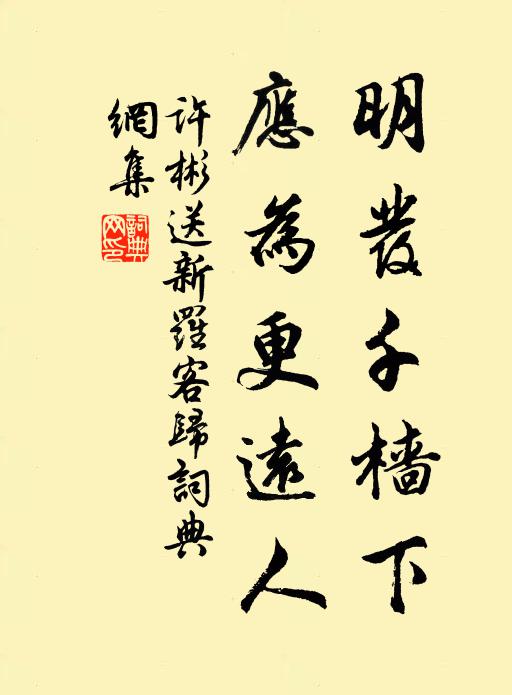 明發千檣下
應為更遠人
許彬送新羅客歸詞典
網集
詞典網印